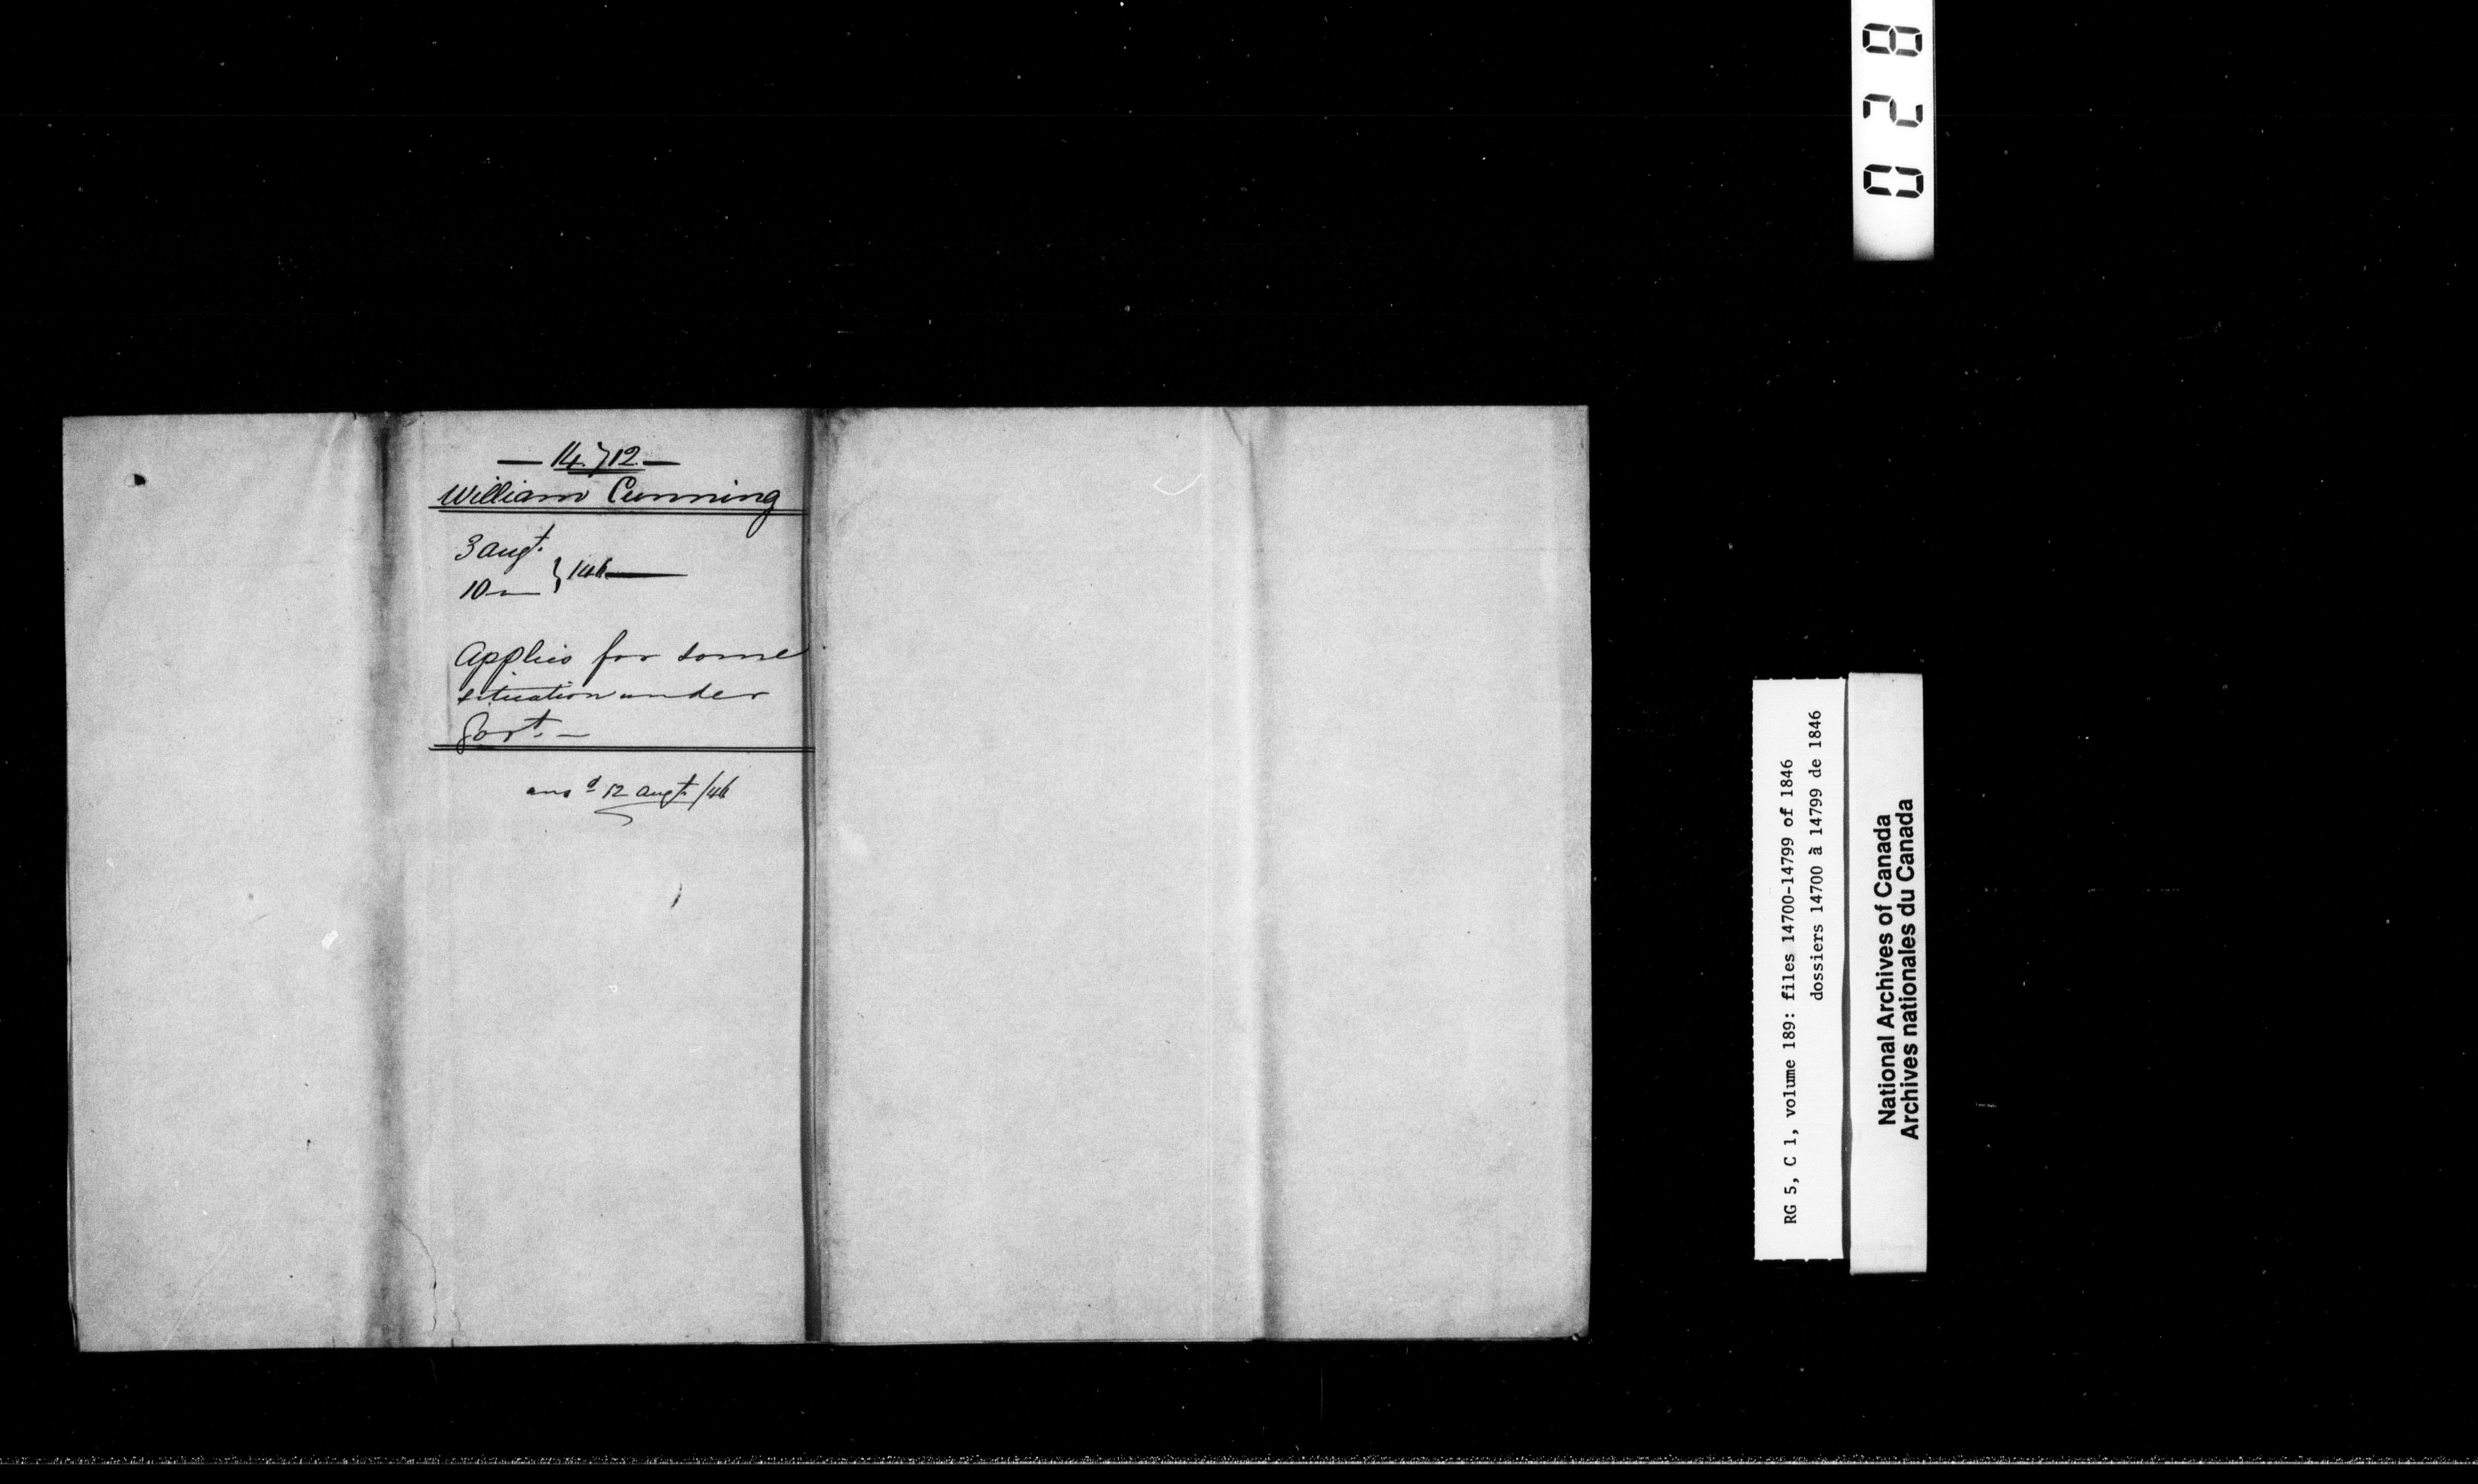 — 14.712 —
William Cunning
3 Augt.
10 — } /46 —
Applies for some
situation under
Govt. —
ansd 12 Augt. /46
028
RG 5, C 1, volume 189: files 14700-14799 of 1846
dossiers 14700 à 14799 de 1846
National Archives of Canada
Archives nationales du Canada